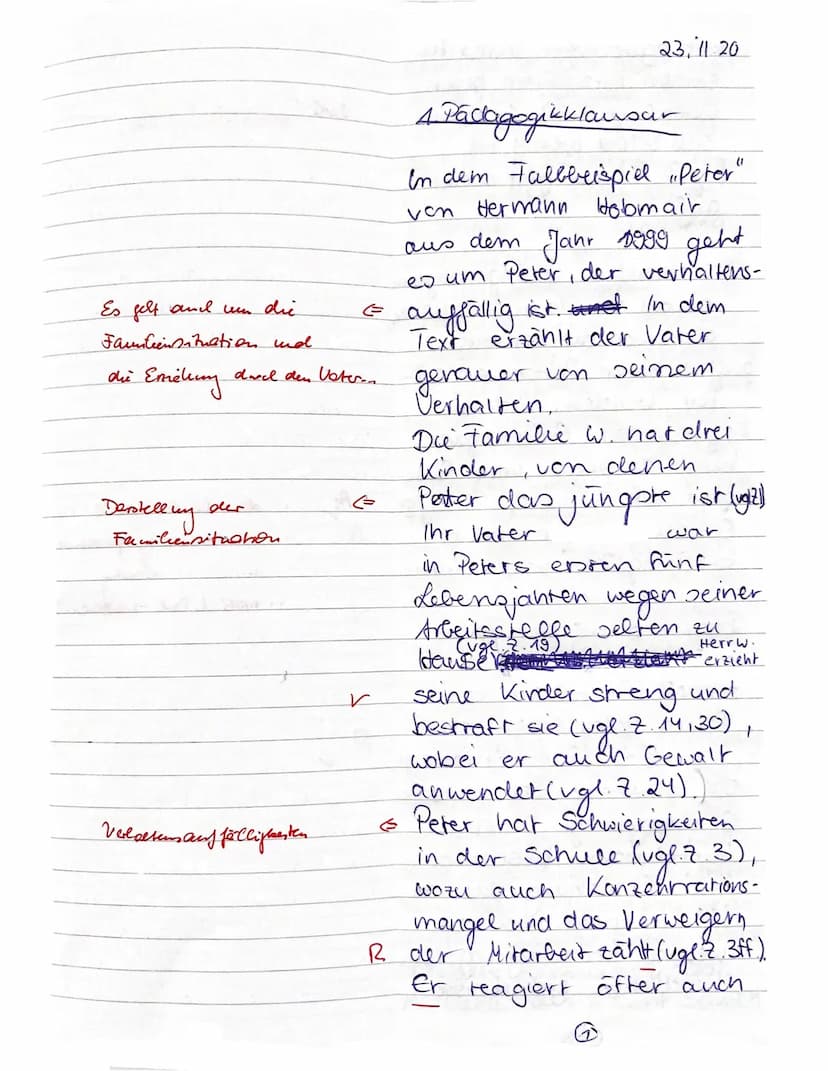 23.11 20
1. Pädagogikklausur
In dem Fallbeispiel „Peter"
von Hermann Hobmair
aus dem Jahr 1999 geht
es um Peter, der verhaltens-
Es geht auch um die ⇐ auffällig ist. und In dem
Familiensituation und Text erzählt der Vater
die Erziehung durch den Vater... genauer von seinem
Verhalten.
Die Familie W. hat drei
Kinder, von denen
Darstellung der ⇐ Peter das jüngste ist (vgl 2)
Familiensituation Ihr Vater war
in Peters ersten fünf
Lebensjahren wegen seiner
Arbeitsstelle selten zu
Hause (vgl. Z. 19) Herr W. erzieht
V seine Kinder streng und
bestraft sie (vgl. Z. 14,30),
wobei er auch Gewalt
anwendet (vgl. Z. 24).)
Verhaltensauffälligkeiten ⇐ Peter hat Schwierigkeiten
in der Schule (vgl. Z. 3),
wozu auch Konzentrations-
mangel und das Verweigern
R der Mitarbeit zählt (vgl. Z. 3ff).
Er reagiert öfter auch
1